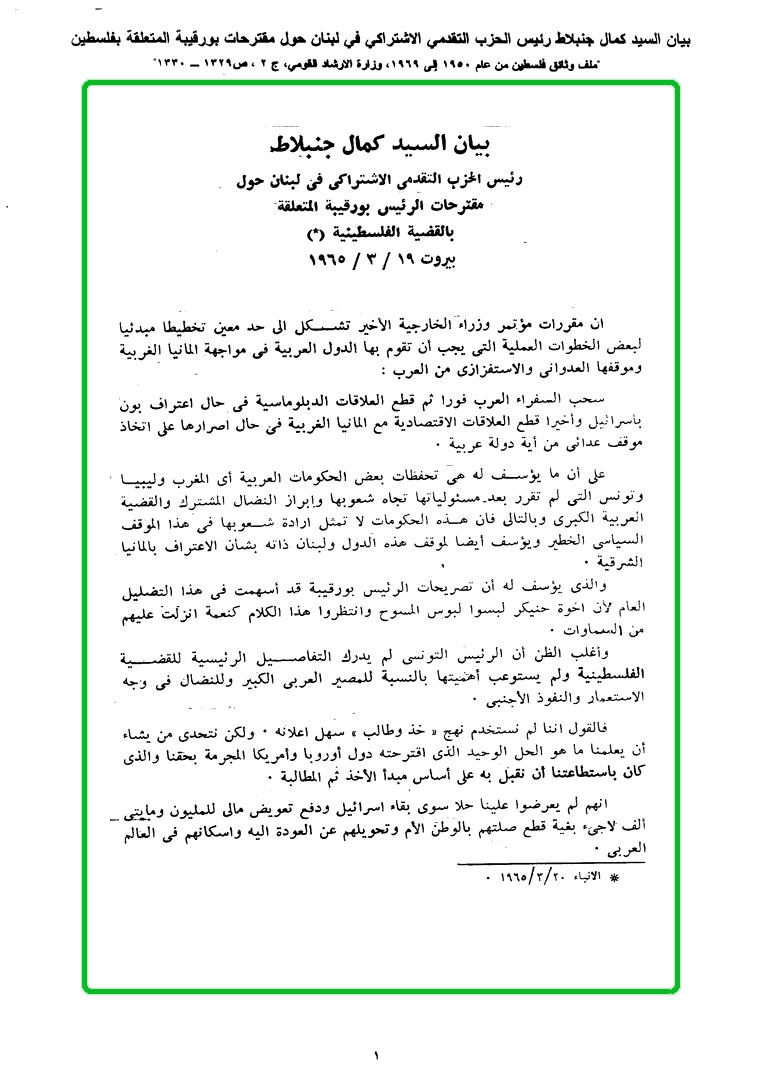 بيان السيد كمال جنبلاط رئيس الحزب التقدمي الاشتراكي في لبنان حول مقترحات بورقيبة المتعلقة بفلسطين
"ملف وثائق فلسطين من عام ١٩٥٠ إلى ١٩٦٩، وزارة الارشاد القومي، ج ٢ ، ص ١٣٢٩ – ١٣٣٠"
بيان السيد كمال جنبلاط
رئيس الحزب التقدمى الاشتراكى فى لبنان حول
مقترحات الرئيس بورقيبة المتعلقة
بالقضية الفلسطينية (*)
بيروت ١٩ / ٣ / ١٩٦٥
ان مقررات مؤتمر وزراء الخارجية الأخير تشكل الى حد معين تخطيطا مبدئيا
لبعض الخطوات العملية التى يجب أن تقوم بها الدول العربية فى مواجهة المانيا الغربية
وموقفها العدوانى والاستفزازى من العرب :
سحب السفراء العرب فورا ثم قطع العلاقات الدبلوماسية فى حال اعتراف بون
بأسرائيل وأخيرا قطع العلاقات الاقتصادية مع المانيا الغربية فى حال اصرارها على اتخاذ
موقف عدائى من أية دولة عربية ٠
على أن ما يؤسف له هى تحفظات بعض الحكومات العربية أى المغرب وليبيا
وتونس التى لم تقرر بعد مسئولياتها تجاه شعوبها وإبراز النضال المشترك والقضية
العربية الكبرى وبالتالى فان هذه الحكومات لا تمثل ارادة شعوبها فى هذا الموقف
السياسى الخطير ويؤسف أيضا لموقف هذه الدول ولبنان ذاته بشأن الاعتراف بالمانيا
الشرقية ٠
والذى يؤسف له أن تصريحات الرئيس بورقيبة قد أسهمت فى هذا التضليل
العام لأن اخوة حنيكر لبسوا لبوس المسوح وانتظروا هذا الكلام كنعمة انزلت عليهم
من السماوات ٠
وأغلب الظن أن الرئيس التونسى لم يدرك التفاصيل الرئيسية للقضية
الفلسطينية ولم يستوعب أهميتها بالنسبة للمصير العربى الكبير وللنضال فى وجه
الاستعمار والنفوذ الأجنبى ٠
فالقول اننا لم نستخدم نهج « خذ وطالب » سهل اعلانه ٠ ولكن نتحدى من يشاء
أن يعلمنا ما هو الحل الوحيد الذى اقترحته دول أوروبا وأمريكا المجرمة بحقنا والذى
كان باستطاعتنا أن نقبل به على أساس مبدأ الأخذ ثم المطالبة ٠
انهم لم يعرضوا علينا حلا سوى بقاء اسرائيل ودفع تعويض مالى للمليون ومايتى
ألف لاجىء بغية قطع صلتهم بالوطن الأم وتحويلهم عن العودة اليه واسكانهم فى العالم
العربى ٠
* الانباء ٢٠/٣/١٩٦٥ ٠
١